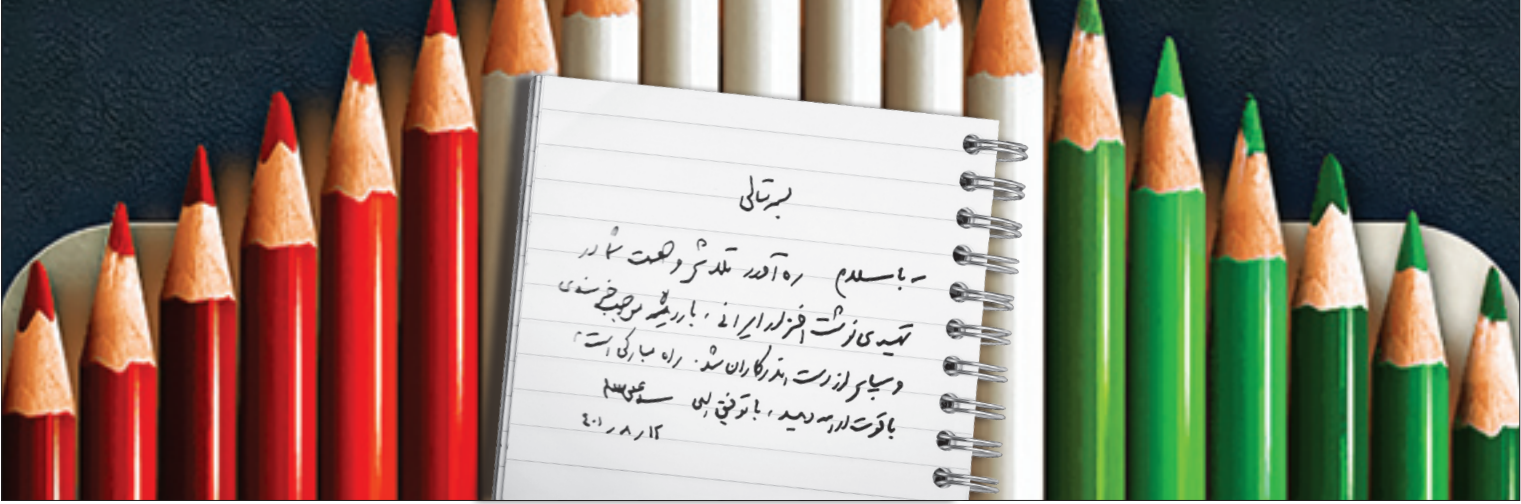 بسمه تعالی
- با سلام ره آورد تلاش و همت شما در
تهیه ی نوشت افزار ایرانی، بار دیگر موجب خرسندی
و سپاس از دست اندرکاران شد. راه مبارکی است،
با قوت ادامه دهید، با توفیق الهی
۴۰۱/۸/۱۲